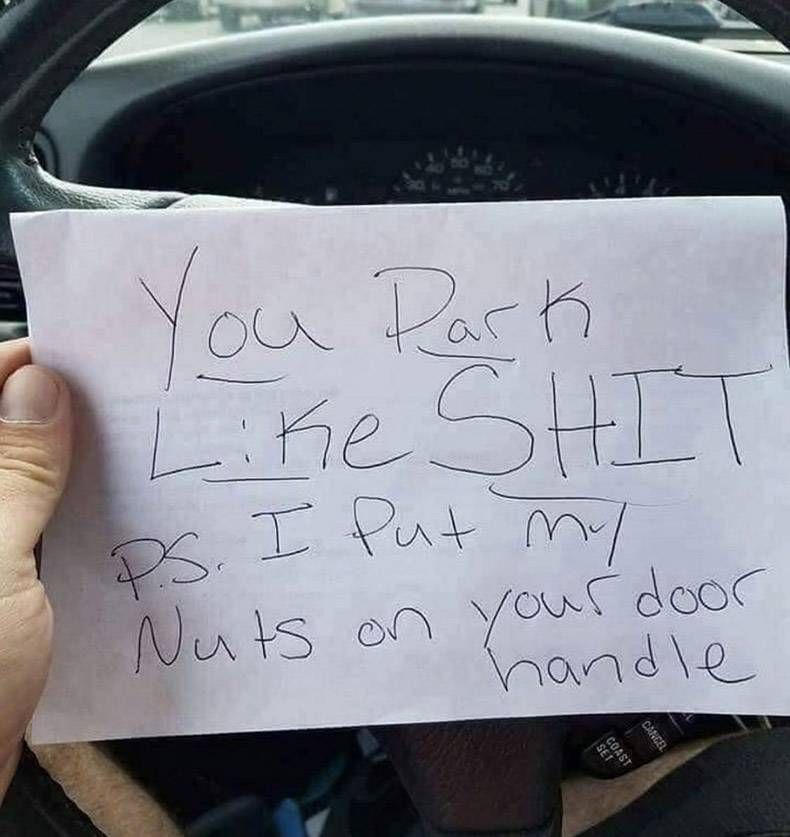 You Park
Like SHIT
P.S. I Put my
Nuts on your door
handle
CANCEL
COAST
SET